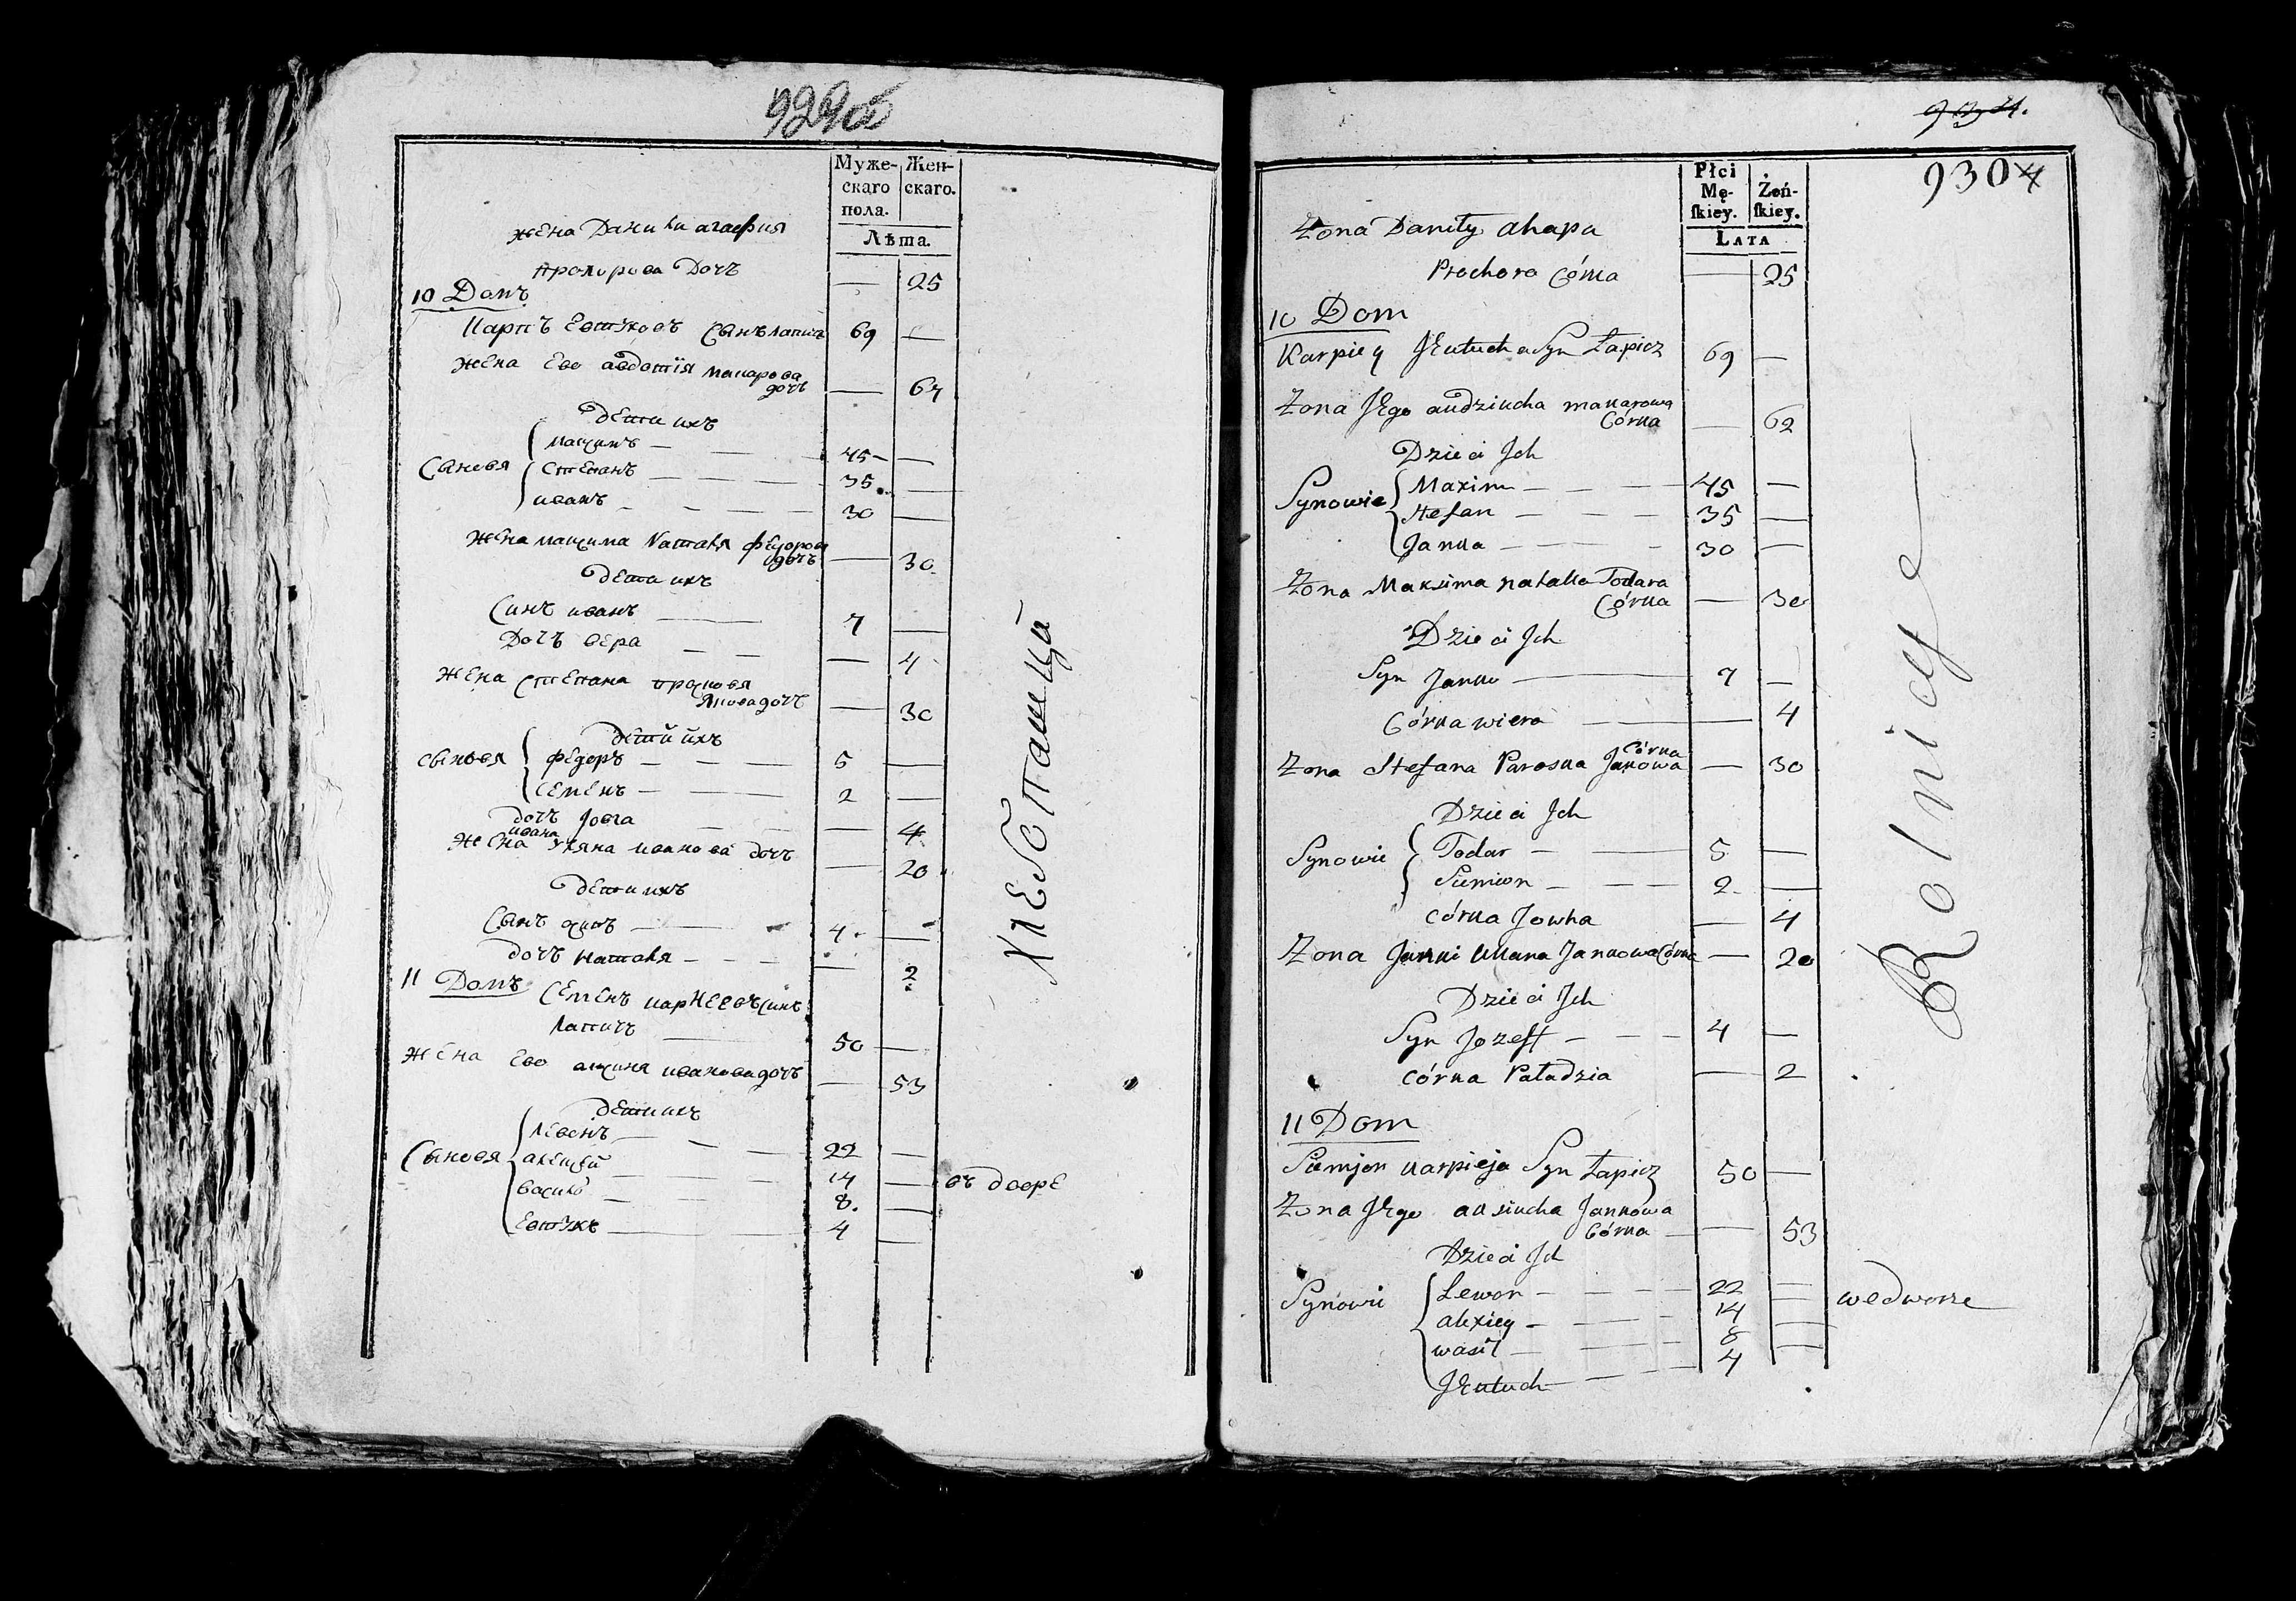 929об
Муже-
скаго
пола.
Жен-
скаго.
Лѣта.
жена Данилы агафия
прохорова Дочъ — 25
10 Домъ
Карпъ Евтуховъ Сынъ лапичъ 69 —
жена Ево авдотія макарова
дочъ — 67
дети ихъ
Сыновя
максимъ — 45 —
степанъ — 35 —
иванъ — 30 —
жена максима Наталя федорова
дочъ — 30
дети ихъ
Синъ иванъ — 7 —
Дочъ вера — 4
жена Степана прасковя
дочъ — 30
дети ихъ
сыновя
федоръ — 5 —
семенъ — 2 —
дочъ Јовга — 4
ивана
жена уляна иванова дочъ — 20
дети ихъ
Сынъ — 4 —
дочъ наталя — 2
11 Домъ Семенъ карпеевъ синъ
лапичъ — 50 —
жена Ево аксиня иванова дочъ — 53
дети ихъ
Сыновя
левонъ — 22 —
алексей — 14 — въ дворе
василь — 8 —
Евтухъ — 4 —
хлебопашцы
9 3 4.
930
Płci
Mę-
skiey.
Żeń-
skiey.
LATA
Zona Daniły ahapa
Prochora Córka — 25
10 Dom
Karpiey Jewtucha Syn Łapicz 69 —
Zona Jego audziucha makarowa
Córka — 62
Dzieci Jch
Synowie
Maxim — 45 —
Stefan — 35 —
Janka — 30 —
Zona Maksima natalla Todara
Córka — 30
Dzieci Jch
Syn Janko — 7 —
Córka wiera — 4
Córka
Zona Stefana Paraska Jakowa — 30
Dzieci Jch
Synowie
Todar — 5 —
Siemion — 2 —
Córka Jowha — 4
Zona Janki Ullana Jankowa Córka — 20
Dzieci Jch
Syn Jozeff — 4 —
Córka Paładzia — 2
11 Dom
Siemjon karpieja Syn Łapicz 50 —
Zona Jego ausiucha Jankowa
Córka — 53
Dzieci Jch
Synowie
Lewon — 22 — wedworze
alexiey — 14 —
wasil — 8 —
Jewtuch — 4
Rolnicy